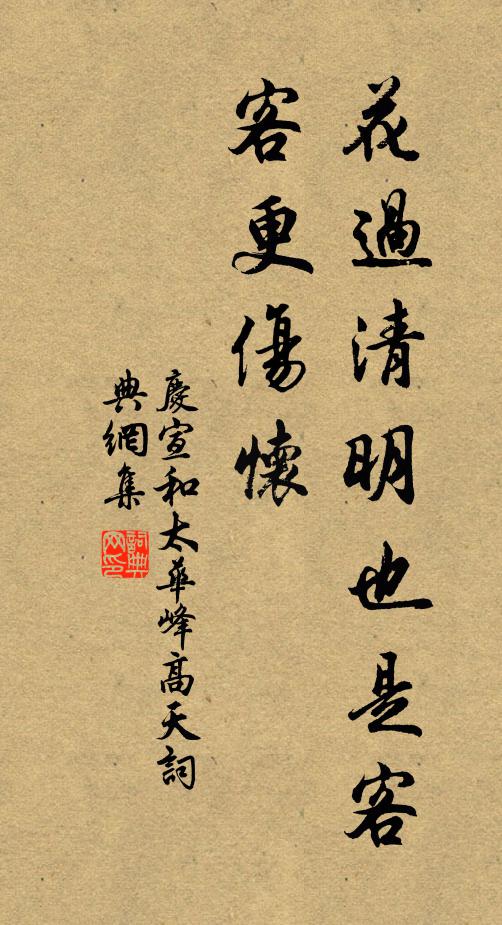 花過清明也是客
客更傷懷
慶宣和太華峰高天詞
典網集
詞典
网印